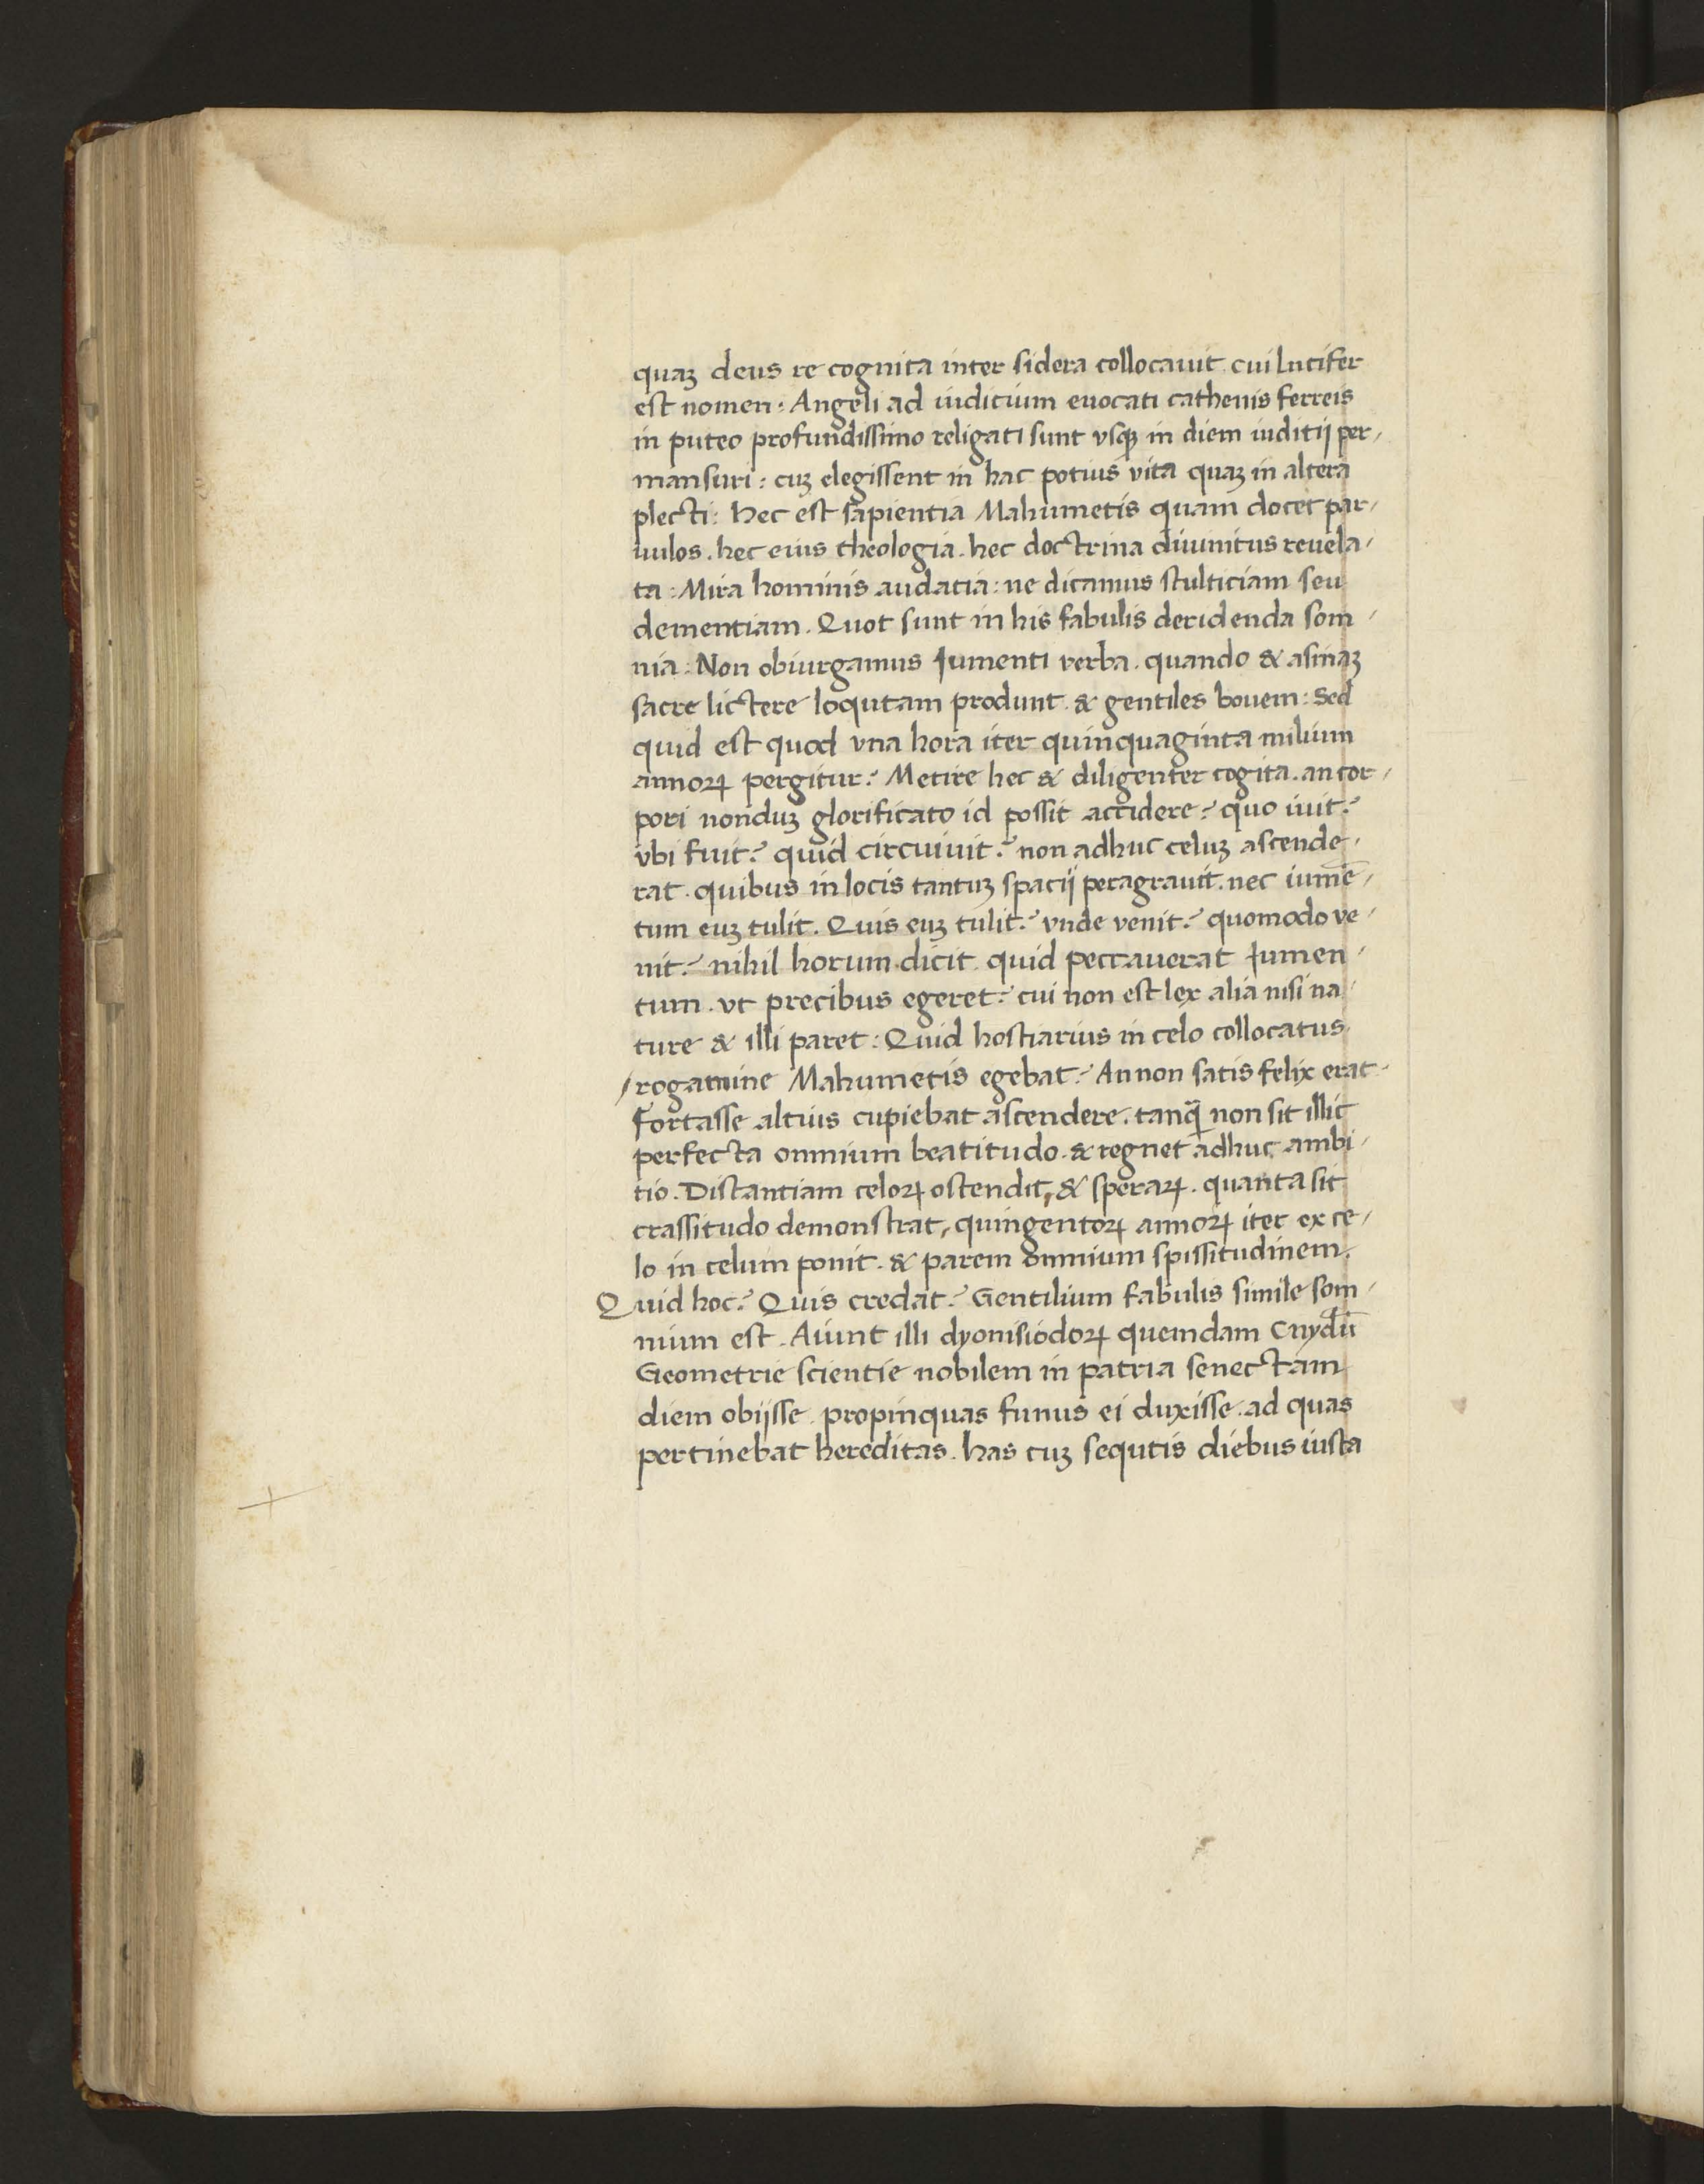 quaꝫ deus re cognita inter sidera collocauit. cui Lucifer
est nomen: Angeli ad iuditium euocati cathenis ferreis
in puteo profundissimo religati sunt vsqꝫ in diem iuditij per-
mansuri: cuꝫ elegissent in hac potius vita quaꝫ in altera
plecti: Hec est sapientia Mahumetis quam docet par-
uulos. hec eius theologia. hec doctrina diuinitus reuela-
ta: Mira hominis audatia: ne dicamus stulticiam seu
dementiam. Quot sunt in his fabulis deridenda som-
nia: Non obiurgamus Jumenti verba. quando & asinaꝫ
sacre lictere loqutam produnt. & gentiles bouem: Sed
quid est quod vna hora iter quinquaginta milium
annoꝝ pergitur? Metire hec & diligenter cogita. an cor-
pori nonduꝫ glorificato id possit accidere? quo iuit?
vbi fuit? quid circuiuit? non adhuc celuꝫ ascende-
rat. quibus in locis tantuꝫ spacij peragrauit. nec iumē-
tum euꝫ tulit. Quis euꝫ tulit? vnde venit? quomodo ve-
nit? nihil horum dicit. quid peccauerat Jumen-
tum. vt precibus egeret? cui non est lex alia nisi na-
ture & illi paret: Quid hostiarius in celo collocatus
/rogamine Mahumetis egebat? An non satis felix erat
fortasse altius cupiebat ascendere. tanq̃ non sit illic
perfecta omnium beatitudo. & regnet adhuc ambi-
tio. Distantiam celoꝝ ostendit, & speraꝝ. quanta sit
crassitudo demonstrat, quingentoꝝ annoꝝ iter ex ce-
lo in celum ponit. & parem omnium spissitudinem.
Quid hoc? Quis credat? Gentilium fabulis simile som-
nium est. Aiunt illi dyonisiodoꝝ quemdam Cnydiū
Geometrie scientie nobilem in patria senectam
diem obijsse. propinquas funus ei duxisse. ad quas
pertinebat hereditas. has cuꝫ sequtis diebus iusta